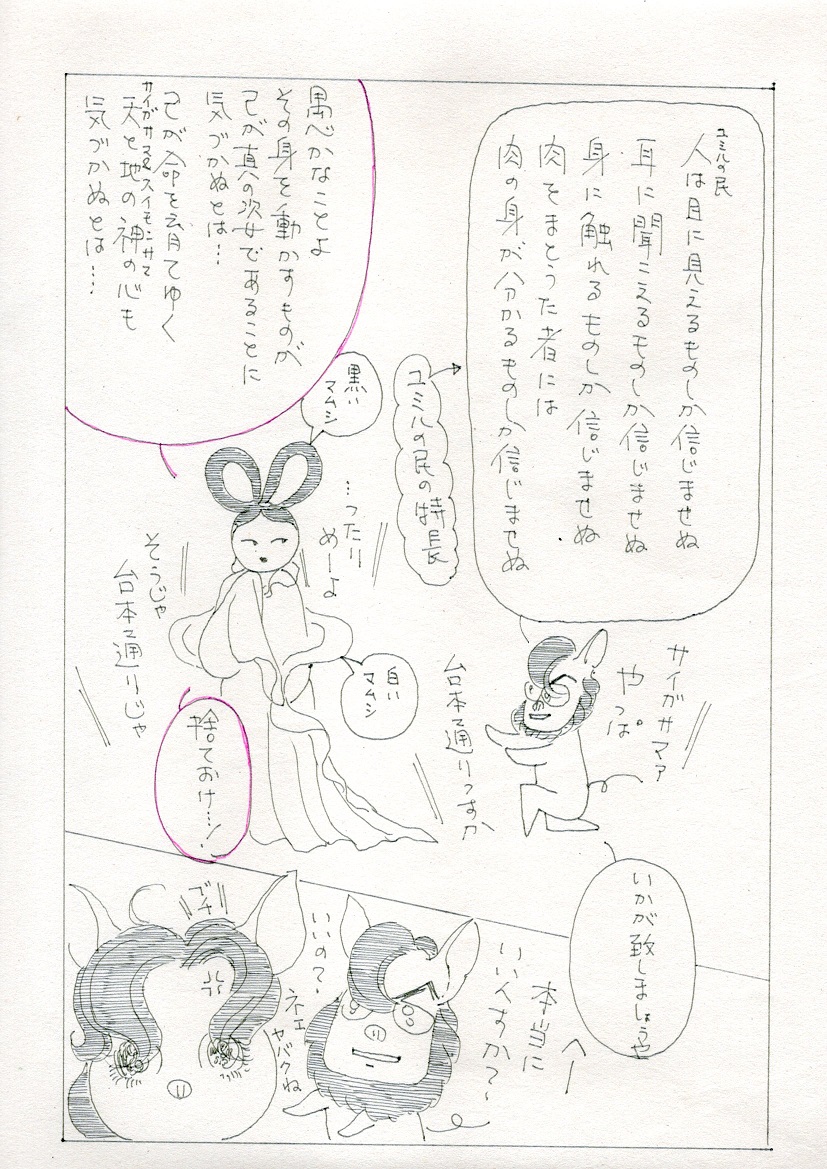 ユミルの民
人は目に見えるものしか信じませぬ
耳に聞こえるものしか信じませぬ
身に触れるものしか信じませぬ
肉をまとうた者には
肉の身が分かるものしか信じませぬ
ユミルの民の特長
愚かなことよ
その身を動かすものが
己が真の次女であることに
気づかぬとは…
己が命を育てゆく
サイガサマ&スイモンサマ
天と地の神の心も
気づかぬとは…
黒い
マムシ
…ったり
めーよ
そうじゃ
台本通りじゃ
白い
マムシ
捨ておけ…!
サイガサマァ
やっぱ
台本通りっすか
いかが致しましょうや
本当に
いいんすか?
いいの?
ネェ
ヤバくね
ブチ